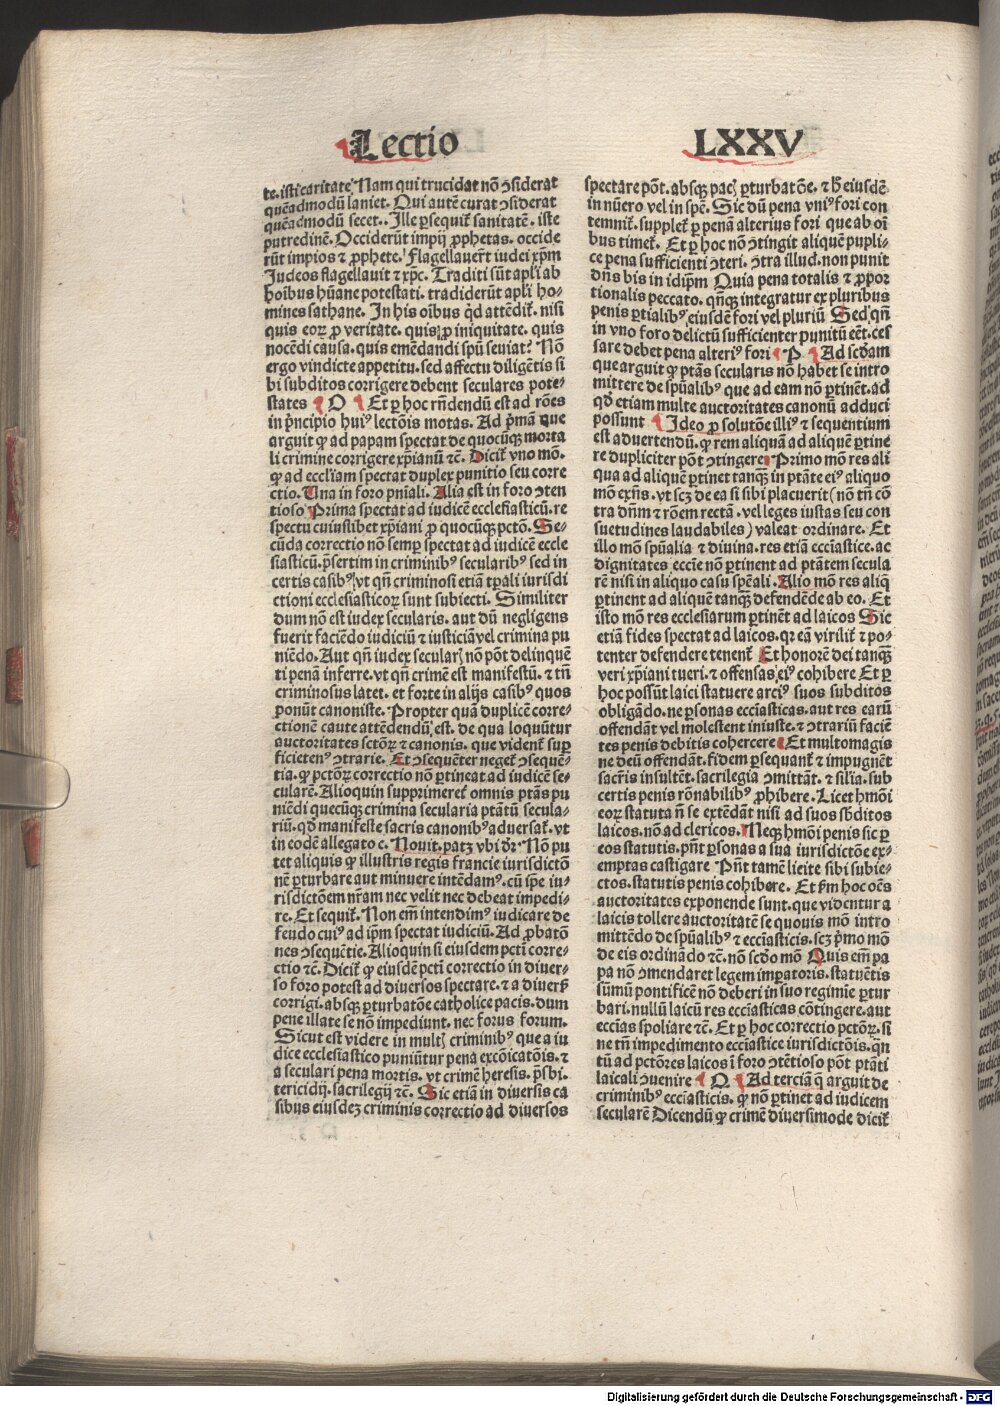 Lectio LXXV
te. isti caritate. Nam qui trucidat nō ꝯsiderat
quēadmodū laniet. Qui autē curat ꝯsiderat
quēadmodū secet. Ille ꝑsequit̃ sanitatē. iste
putredinē. Occiderūt impij ꝓphetas. occide
rūt impios ⁊ ꝓphete. Flagellauer̃t iudei xp̄m
Iudeos flagellauit ⁊ xp̄c. Traditi sūt apl̄i ab
hoībus hūane potestati. tradiderūt apl̄i ho⸗
mines sathane. In his oībus qd̄ attēdit̃. nisi
quis eoꝝ ꝓ veritate. quis ꝓ iniquitate. quis
nocēdi causa. quis emēdandi spū seuiat? Nō
ergo vindicte appetitu. sed affectu diligētis si
bi subditos corrigere debent seculares pote⸗
states ¶ O ¶ Et ꝑ hoc rn̄dendū est ad rōes
in p̄ncipio huiꝰ lectōis motas. Ad p̄mā que
arguit ꝙ ad papam spectat de quocūqꝫ morta
li crimine corrigere xp̄ianū ⁊c̄. Dicit̃ vno mō.
ꝙ ad eccl̄iam spectat duplex punitio seu corre
ctio. Una in foro pn̄iali. Alia est in foro ꝯten
tioso Prima spectat ad iudicē ecclesiasticū. re
spectu cuiuslibet xp̄iani ꝓ quocūqꝫ pctō. Se⸗
cūda correctio nō semꝑ spectat ad iudicē eccle
siasticū. p̄sertim in criminibꝰ secularibꝰ sed in
certis casibꝰ. vt qn̄ criminosi etiā tꝑali iurisdi
ctioni ecclesiasticoꝝ sunt subiecti. Similiter
dum nō est iudex secularis. aut dū negligens
fuerit faciēdo iudiciū ⁊ iusticiā vel crimina pu
niēdo. Aut qn̄ iudex secularꝭ nō pōt delinquē
ti penā inferre. vt qn̄ crimē est manifestū. ⁊ tn̄
criminosus latet. et forte in alijs casibꝰ quos
ponūt canoniste. Propter quā duplicē corre⸗
ctionē caute attēdendū est. de qua loquūtur
auctoritates sctōꝝ ⁊ canonis. que vident̃ suꝑ
ficietenꝰ ꝯtrarie. Et ꝯsequēter neget̃ ꝯsequē⸗
tia. ꝙ pctōꝝ correctio nō ꝑtineat ad iudicē se⸗
cularē. Alioquin supprimeret̃ omnis ptās pu
niēdi quecūqꝫ crimina secularia ptātū secula⸗
riū. qd̄ manifeste sacris canonibꝰ aduersat̃. vt
in eodē allegato c. Nouit. patꝫ vbi d̄r. Nō pu
tet aliquis ꝙ illustris regis francie iurisdictō
nē ꝑturbare aut minuere intēdamꝰ. cū ip̄e iu⸗
risdictōem nr̄am nec velit nec debeat impedi⸗
re. Et sequit̃. Non em̄ intendimꝰ iudicare de
feudo cuiꝰ ad ip̄m spectat iudiciū. Ad ꝓbatō
nes ꝯsequētie. Alioquin si eiusdem pcti corre⸗
ctio ⁊c̄. Dicit̃ ꝙ eiusdē pcti correctio in diuer⸗
so foro potest ad diuersos spectare. ⁊ a diuersꝭ
corrigi. absqꝫ ꝑturbatōe catholice pacis. dum
pene illate se nō impediunt. nec forus forum.
Sicut est videre in multꝭ criminibꝰ que a iu
dice ecclesiastico puniūtur pena excōicatōis. ⁊
a seculari pena mortis. vt crimē heresis. p̄sbi.
tericidij. sacrilegij ⁊c̄. Sic etiā in diuersis ca
sibus eiusdeꝫ criminis correctio ad diuersos
spectare pōt. absqꝫ pacꝭ ꝑturbatōe. ⁊ hꝰ eiusdē
in nūero vel in spē. Sic dū pena vniꝰ fori con
temnit̃. supplet̃ ꝑ penā alterius fori que ab oī
bus timet̃. Et ꝑ hoc nō ꝯtingit aliquē pupli⸗
ce pena sufficienti ꝯteri. ꝯtra illud. non punit
dn̄s bis in idip̄m Quia pena totalis ⁊ ꝓpor
tionalis peccato. qn̄qꝫ integratur ex pluribus
penis ꝑtialibꝰ eiusdē fori vel pluriū Sed qn̄
in vno foro delictū sufficienter punitū eēt. ces
sare debet pena alteriꝰ fori ¶ P ¶ Ad scd̄am
que arguit ꝙ ptās secularis nō habet se intro
mittere de spūalibꝰ que ad eam nō ꝑtinēt. ad
qd̄ etiam multe auctoritates canonū adduci
possunt ¶ Ideo ꝓ solutōe illiꝰ ⁊ sequentium
est aduertendū. ꝙ rem aliquā ad aliquē ꝑtine
re dupliciter pōt ꝯtingere Primo mō res ali
qua ad aliquē ꝑtinet tanqꝫ in ptāte eiꝰ aliquo
mō exn̄s. vt scꝫ de ea si sibi placuerit (nō tn̄ cō
tra dn̄m ⁊ rōem rectā. vel leges iustas seu con
suetudines laudabiles) valeat ordinare. Et
illo mō spūalia ⁊ diuina. res etiā eccīastice. ac
dignitates eccīe nō ꝑtinent ad ptātem secula
rē nisi in aliquo casu spēali. Alio mō res aliqͣ
ꝑtinent ad aliquē tanqꝫ defendēde ab eo. Et
isto mō res ecclesiarum ꝑtinēt ad laicos Sic
etiā fides spectat ad laicos. qꝛ eā virilit̃ ⁊ po⸗
tenter defendere tenent̃ Et honorē dei tanqꝫ
veri xp̄iani tueri. ⁊ offensas eiꝰ cohibere Et ꝑ
hoc possūt laici statuere arciꝰ suos subditos
obligādo. ne ꝑsonas eccīasticas. aut res earū
offendāt vel molestent iniuste. ⁊ ꝯtrariū faciē
tes penis debitis cohercere Et multomagis
ne deū offendāt. fidem ꝑsequant̃ ⁊ impugnēt
sacrīs insultēt. sacrilegia ꝯmittāt. ⁊ sil̄ia. sub
certis penis rōnabilibꝰ ꝓhibere. Licet hmōi
eoꝝ statuta nō se extēdāt nisi ad suos sb̄ditos
laicos. nō ad clericos. Neqꝫ hmōi penis sic ꝑ
eos statutis. pn̄t ꝑsonas a sua iurisdictōe ex⸗
emptas castigare Pn̄t tamē licite sibi subie⸗
ctos. statutis penis cohibere. Et ẜm hoc oēs
auctoritates exponende sunt. que videntur a
laicis tollere auctoritatē se quouis mō intro
mittēdo de spūalibꝰ ⁊ eccīasticis. scꝫ p̄mo mō
de eis ordinādo ⁊c̄. nō scd̄o mō Quis em̄ pa
pa nō ꝯmendaret legem imꝑatoris. statuētis
sūmū pontificē nō deberi in suo regimīe ꝑtur
bari. nullū laicū res eccīasticas cōtingere. aut
eccīas spoliare ⁊c̄. Et ꝑ hoc correctio pctōꝝ. si
ne tn̄ impedimento eccīastice iurisdictōis. qn̄
tū ad pctōres laicos ī foro ꝯtētioso pōt ptāti
laicali ꝯuenire ¶ Q ¶ Ad terciā q̄ arguit de
criminibꝰ eccīasticis. ꝙ nō ꝑtinet ad iudicem
secularē Dicendū ꝙ crimē diuersimode dicit̃
Digitalisierung gefördert durch die Deutsche Forschungsgemeinschaft - DFG